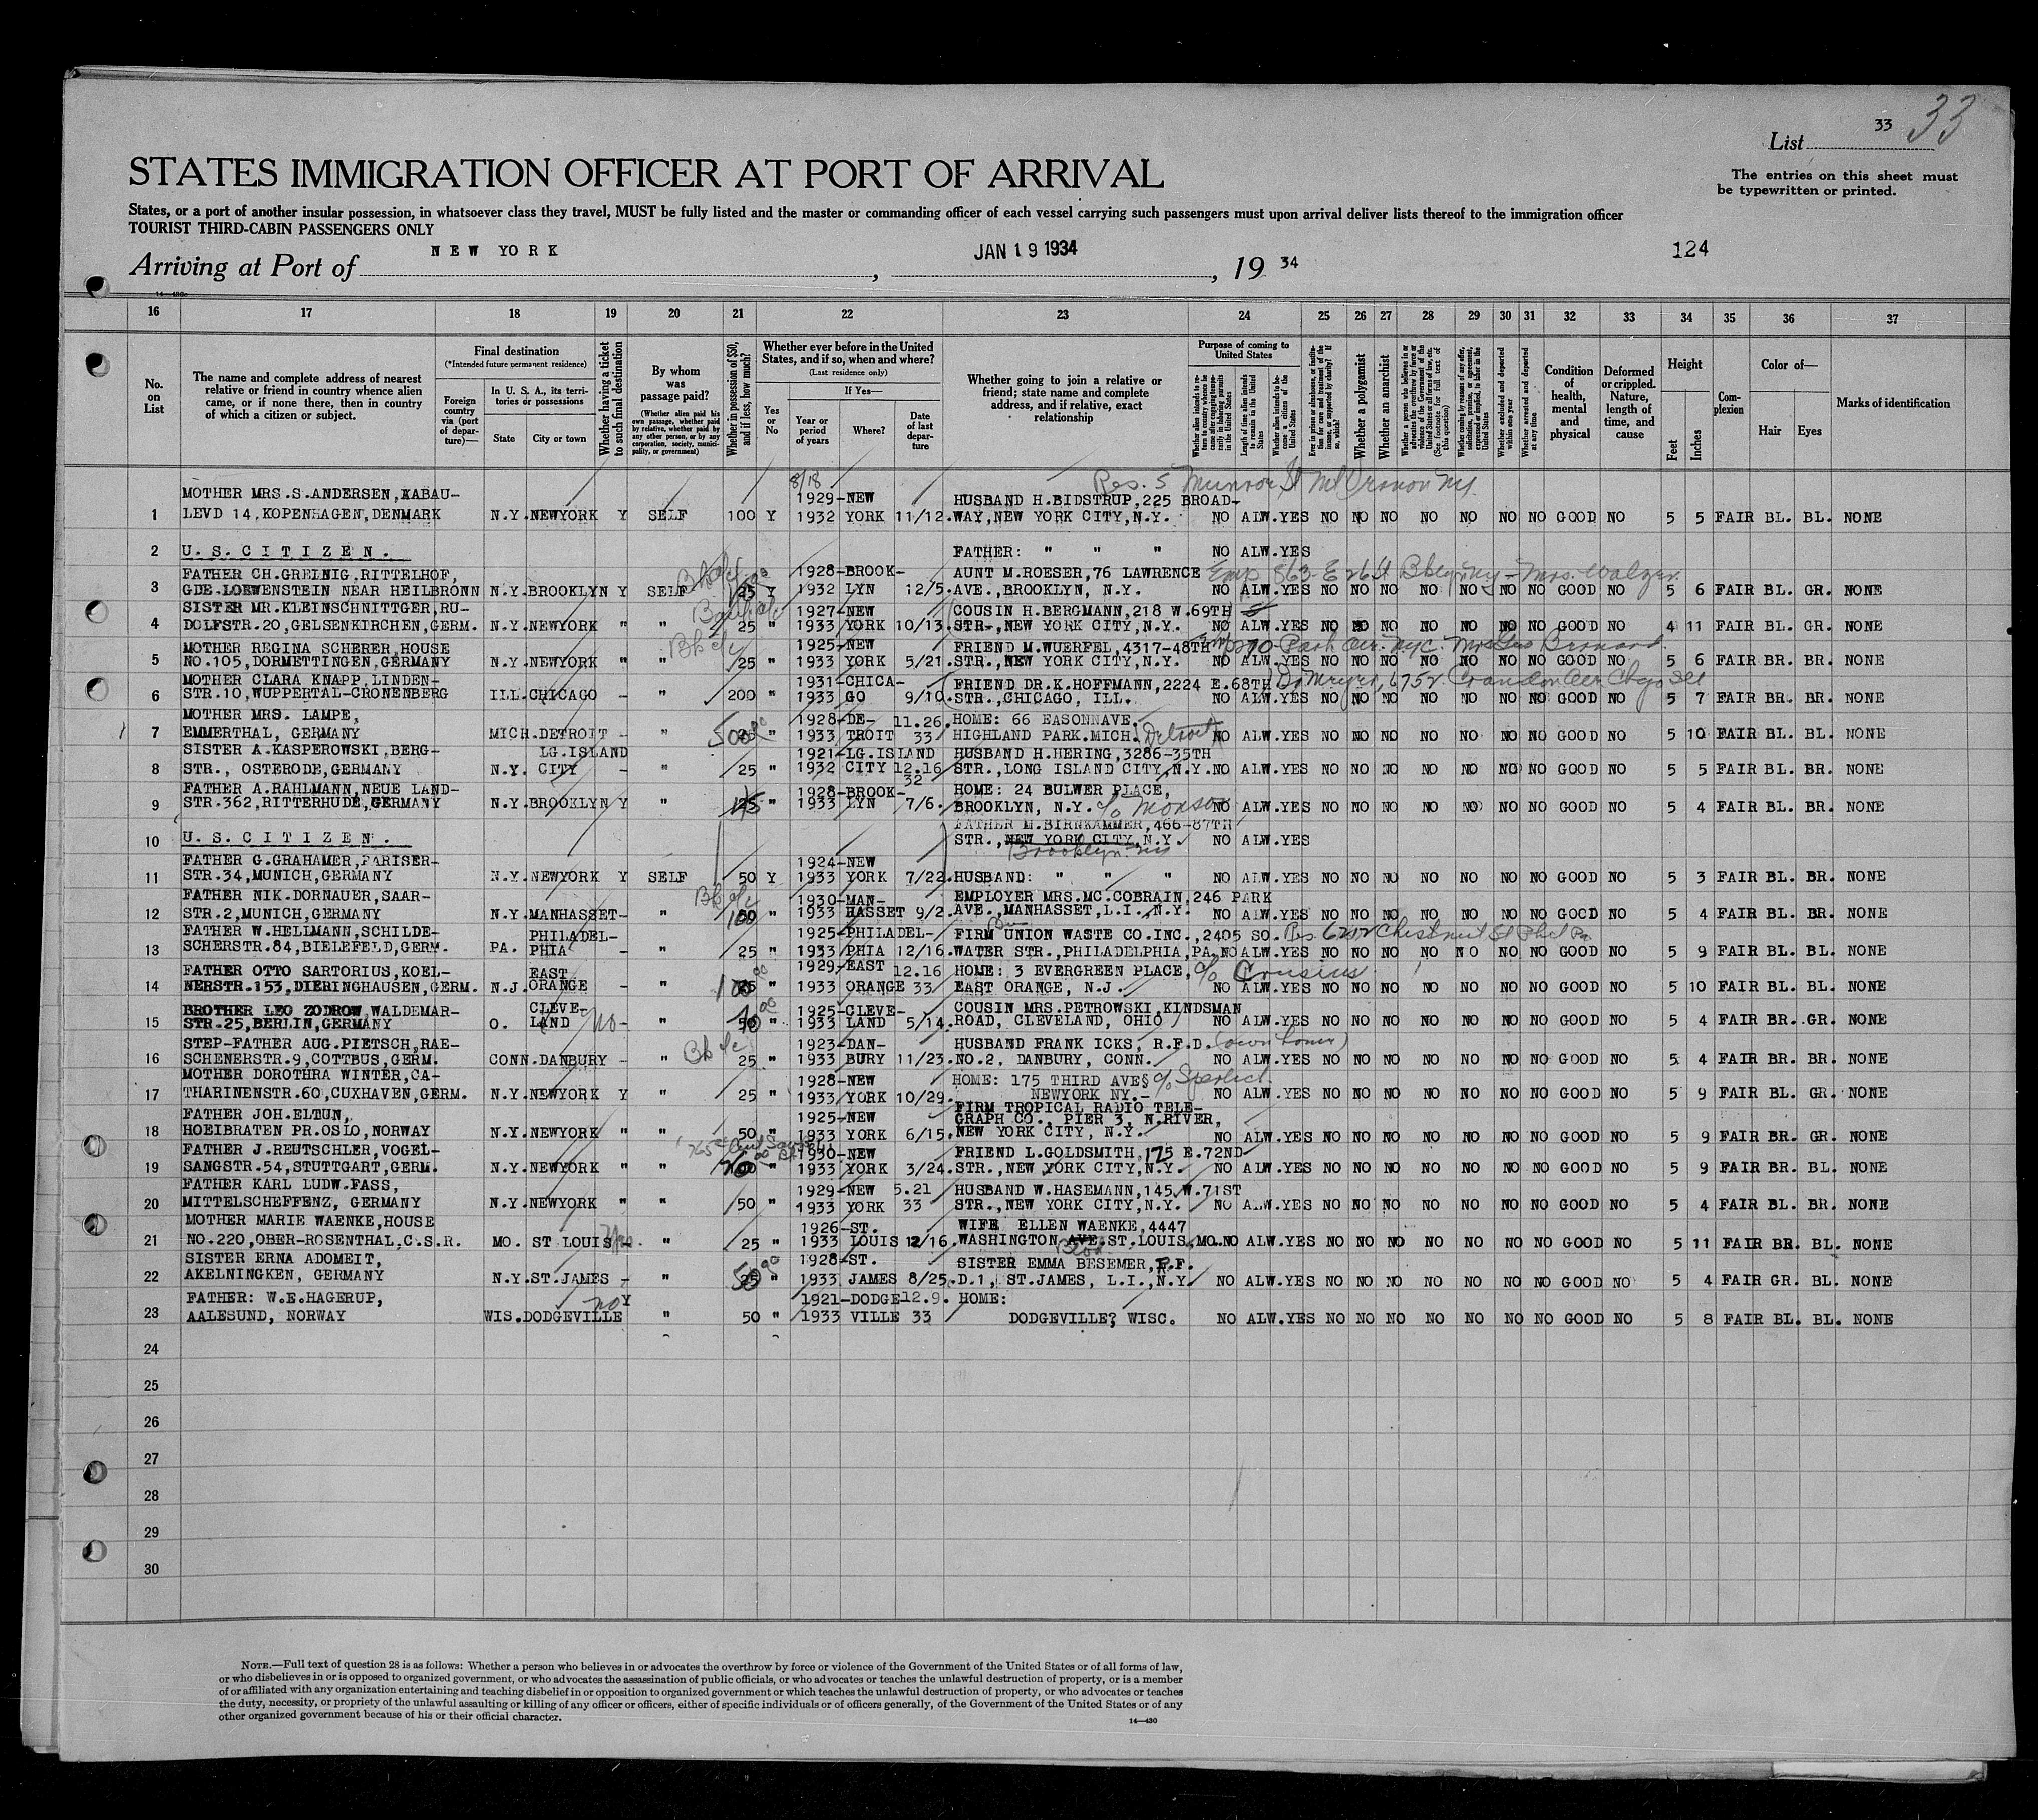 33
List 33
STATES IMMIGRATION OFFICER AT PORT OF ARRIVAL
The entries on this sheet must
be typewritten or printed.
States, or a port of another insular possession, in whatsoever class they travel, MUST be fully listed and the master or commanding officer of each vessel carrying such passengers must upon arrival deliver lists thereof to the immigration officer
TOURIST THIRD-CABIN PASSENGERS ONLY
Arriving at Port of NEW YORK, JAN 19 1934, 19 34
124
14—430c
16 17 18 19 20 21 22 23 24 25 26 27 28 29 30 31 32 33 34 35 36 37
No. on List
The name and complete address of nearest relative or friend in country whence alien came, or if none there, then in country of which a citizen or subject.
Final destination
(*Intended future permanent residence)
Foreign country via (port of departure)—
In U. S. A., its territories or possessions
State
City or town
Whether having a ticket to such final destination
By whom was passage paid?
(Whether alien paid his own passage, whether paid by relative, whether paid by any other person, or by any corporation, society, municipality, or government)
Whether in possession of $50, and if less, how much?
Whether ever before in the United States, and if so, when and where?
(Last residence only)
Yes or No
If Yes—
Year or period of years
Where?
Date of last departure
Whether going to join a relative or friend; state name and complete address, and if relative, exact relationship
Purpose of coming to United States
Length of time alien intends to remain in the United States
Whether alien intends to become a citizen of the United States
Whether a polygamist
Whether an anarchist
(See footnote for full text of this question)
Whether arrested and deported at any time
Condition of health, mental and physical
Deformed or crippled. Nature, length of time, and cause
Height
Feet
Inches
Complexion
Color of—
Hair
Eyes
Marks of identification
8/18
Res. 5 Munroe St Mt Vernon NY.
MOTHER MRS.S.ANDERSEN,KABAU- 1929-NEW HUSBAND H.BIDSTRUP,225 BROAD-
1 LEVD 14,KOPENHAGEN,DENMARK N.Y.NEWYORK Y SELF 100 Y 1932 YORK 11/12. WAY,NEW YORK CITY,N.Y. NO ALW.YES NO NO NO NO NO NO NO GOOD NO 5 5 FAIR BL. BL. NONE
2 U.S.CITIZEN. FATHER: " " " NO ALW.YES
FATHER CH.GREINIG,RITTELHOF, 1928-BROOK- AUNT M.ROESER,76 LAWRENCE
3 GDE.LOEWENSTEIN NEAR HEILBRONN N.Y.BROOKLYN Y SELF 25 Y 1932 LYN 12/5. AVE.,BROOKLYN, N.Y. NO ALW.YES NO NO NO NO NO NO NO GOOD NO 5 6 FAIR BL. GR. NONE
SISTER MR.KLEINSCHNITTGER,RU- 1927-NEW COUSIN H.BERGMANN,218 W.69TH
4 DOLFSTR.20,GELSENKIRCHEN,GERM. N.Y.NEWYORK " " 25 " 1933 YORK 10/13. STR.,NEW YORK CITY,N.Y. NO ALW.YES NO NO NO NO NO NO NO GOOD NO 4 11 FAIR BL. GR. NONE
MOTHER REGINA SCHERER,HOUSE 1925-NEW FRIEND M.WUERFEL,4317-48TH
5 NO.105,DORMETTINGEN,GERMANY N.Y.NEWYORK " " 25 " 1933 YORK 5/21. STR.,NEW YORK CITY,N.Y. NO ALW.YES NO NO NO NO NO NO NO GOOD NO 5 6 FAIR BR. BR. NONE
MOTHER CLARA KNAPP,LINDEN- 1931-CHICA- FRIEND DR.K.HOFFMANN,2224 E.68TH
6 STR.10,WUPPERTAL-CRONENBERG ILL.CHICAGO - " 200 " 1933 GO 9/10. STR.,CHICAGO, ILL. NO ALW.YES NO NO NO NO NO NO NO GOOD NO 5 7 FAIR BR. BR. NONE
MOTHER MRS. LAMPE, 1928-DE- 11.26. HOME: 66 EASONNAVE.
7 EMMERTHAL, GERMANY MICH.DETROIT - " 500 " 1933 TROIT 33 HIGHLAND PARK.MICH. (Detroit) NO ALW.YES NO NO NO NO NO NO NO GOOD NO 5 10 FAIR BL. BL. NONE
SISTER A.KASPEROWSKI,BERG- LG.ISLAND 1921-LG.ISLAND HUSBAND H.HERING,3286-35TH
8 STR., OSTERODE,GERMANY N.Y. CITY - " 25 " 1932 CITY 12.16 32 STR.,LONG ISLAND CITY,N.Y. NO ALW.YES NO NO NO NO NO NO NO GOOD NO 5 5 FAIR BL. BR. NONE
FATHER A.RAHLMANN,NEUE LAND- 1928-BROOK- HOME: 24 BULWER PLACE,
9 STR.362,RITTERHUDE,GERMANY N.Y.BROOKLYN Y " 1933 LYN 7/6. BROOKLYN, N.Y. c/o Monson NO ALW.YES NO NO NO NO NO NO NO GOOD NO 5 4 FAIR BL. BR. NONE
FATHER M.BIRNKAMMER,466-87TH
10 U.S.CITIZEN. STR.,NEW YORK CITY,N.Y. NO ALW.YES
Brooklyn
FATHER G.GRAHAMER,PARISER- 1924-NEW
11 STR.34,MUNICH,GERMANY N.Y.NEWYORK Y SELF 50 Y 1933 YORK 7/22. HUSBAND: " " " NO ALW.YES NO NO NO NO NO NO NO GOOD NO 5 3 FAIR BL. BR. NONE
FATHER NIK.DORNAUER,SAAR- 1930-MAN- EMPLOYER MRS.MC.COBRAIN,246 PARK
12 STR.2,MUNICH,GERMANY N.Y.MANHASSET- " 100 " 1933 HASSET 9/2. AVE.,MANHASSET,L.I.,N.Y. NO ALW.YES NO NO NO NO NO NO NO GOOD NO 5 4 FAIR BL. BR. NONE
FATHER W.HELLMANN,SCHILDE- PHILADEL- 1925-PHILADEL- FIRM UNION WASTE CO.INC.,2405 SO. Res 6212 Chestnut St Phil Pa
13 SCHERSTR.84,BIELEFELD,GERM. PA. PHIA - " 25 " 1933 PHIA 12/16. WATER STR.,PHILADELPHIA,PA. NO ALW.YES NO NO NO NO NO NO NO GOOD NO 5 9 FAIR BL. BL. NONE
FATHER OTTO SARTORIUS,KOEL- EAST 1929-EAST 12.16 HOME: 3 EVERGREEN PLACE, c/o Cousins
14 NERSTR.153,DIERINGHAUSEN,GERM. N.J.ORANGE - " 100 " 1933 ORANGE 33 EAST ORANGE, N.J. NO ALW.YES NO NO NO NO NO NO NO GOOD NO 5 10 FAIR BL. BL. NONE
BROTHER LEO ZODROW,WALDEMAR- CLEVE- 1925-CLEVE- COUSIN MRS.PETROWSKI,KINDSMAN
15 STR.25,BERLIN,GERMANY O. LAND no - " " 1933 LAND 5/14. ROAD, CLEVELAND, OHIO NO ALW.YES NO NO NO NO NO NO NO GOOD NO 5 4 FAIR BR. GR. NONE
STEP-FATHER AUG.PIETSCH,RAE- 1923-DAN- HUSBAND FRANK ICKS, R.F.D. (own home)
16 SCHENERSTR.9,COTTBUS,GERM. CONN.DANBURY - " 25 " 1933 BURY 11/23. NO.2, DANBURY, CONN. NO ALW.YES NO NO NO NO NO NO NO GOOD NO 5 4 FAIR BR. BR. NONE
MOTHER DOROTHRA WINTER,CA- 1928-NEW HOME: 175 THIRD AVE§
17 THARINENSTR.60,CUXHAVEN,GERM. N.Y.NEWYORK Y " 25 " 1933 YORK 10/29. NEWYORK NY.- NO ALW.YES NO NO NO NO NO NO NO GOOD NO 5 9 FAIR BL. GR. NONE
FATHER JOH.ELTUN, 1925-NEW FIRM TROPICAL RADIO TELE-
GRAPH CO., PIER 3, N.RIVER,
18 HOEIBRATEN PR.OSLO,NORWAY N.Y.NEWYORK " " 50 " 1933 YORK 6/15. NEW YORK CITY, N.Y. NO ALW.YES NO NO NO NO NO NO NO GOOD NO 5 9 FAIR BR. GR. NONE
FATHER J.REUTSCHLER,VOGEL- 1930-NEW FRIEND L.GOLDSMITH,175 E.72ND
19 SANGSTR.54,STUTTGART,GERM. N.Y.NEWYORK " " " 1933 YORK 3/24. STR.,NEW YORK CITY,N.Y. NO ALW.YES NO NO NO NO NO NO NO GOOD NO 5 9 FAIR BR. BL. NONE
FATHER KARL LUDW.FASS, 1929-NEW 5.21 HUSBAND W.HASEMANN,145 W.71ST
20 MITTELSCHEFFENZ, GERMANY N.Y.NEWYORK " " 50 " 1933 YORK 33 STR.,NEW YORK CITY,N.Y. NO ALW.YES NO NO NO NO NO NO NO GOOD NO 5 4 FAIR BL. BR. NONE
MOTHER MARIE WAENKE,HOUSE 1926-ST. WIFE ELLEN WAENKE,4447
21 NO.220,OBER-ROSENTHAL,C.S.R. MO. ST LOUIS - " 25 " 1933 LOUIS 12/16. WASHINGTON AVE.ST.LOUIS,MO. NO ALW.YES NO NO NO NO NO NO NO GOOD NO 5 11 FAIR BR. BL. NONE
Blvd.
SISTER ERNA ADOMEIT, 1928-ST. SISTER EMMA BESEMER,R.F.
22 AKELNINGKEN, GERMANY N.Y.ST.JAMES - " 50 " 1933 JAMES 8/25. D.1, ST.JAMES, L.I.,N.Y. NO ALW.YES NO NO NO NO NO NO NO GOOD NO 5 4 FAIR GR. BL. NONE
FATHER: W.E.HAGERUP, no Y 1921-DODGE- 12.9. HOME:
23 AALESUND, NORWAY WIS.DODGEVILLE " 50 " 1933 VILLE 33 DODGEVILLE, WISC. NO ALW.YES NO NO NO NO NO NO NO GOOD NO 5 8 FAIR BL. BL. NONE
24
25
26
27
28
29
30
NOTE.—Full text of question 28 is as follows: Whether a person who believes in or advocates the overthrow by force or violence of the Government of the United States or of all forms of law,
or who disbelieves in or is opposed to organized government, or who advocates the assassination of public officials, or who advocates or teaches the unlawful destruction of property, or is a member
of or affiliated with any organization entertaining and teaching disbelief in or opposition to organized government or which teaches the unlawful destruction of property, or who advocates or teaches
the duty, necessity, or propriety of the unlawful assaulting or killing of any officer or officers, either of specific individuals or of officers generally, of the Government of the United States or of any
other organized government because of his or their official character.
14—430